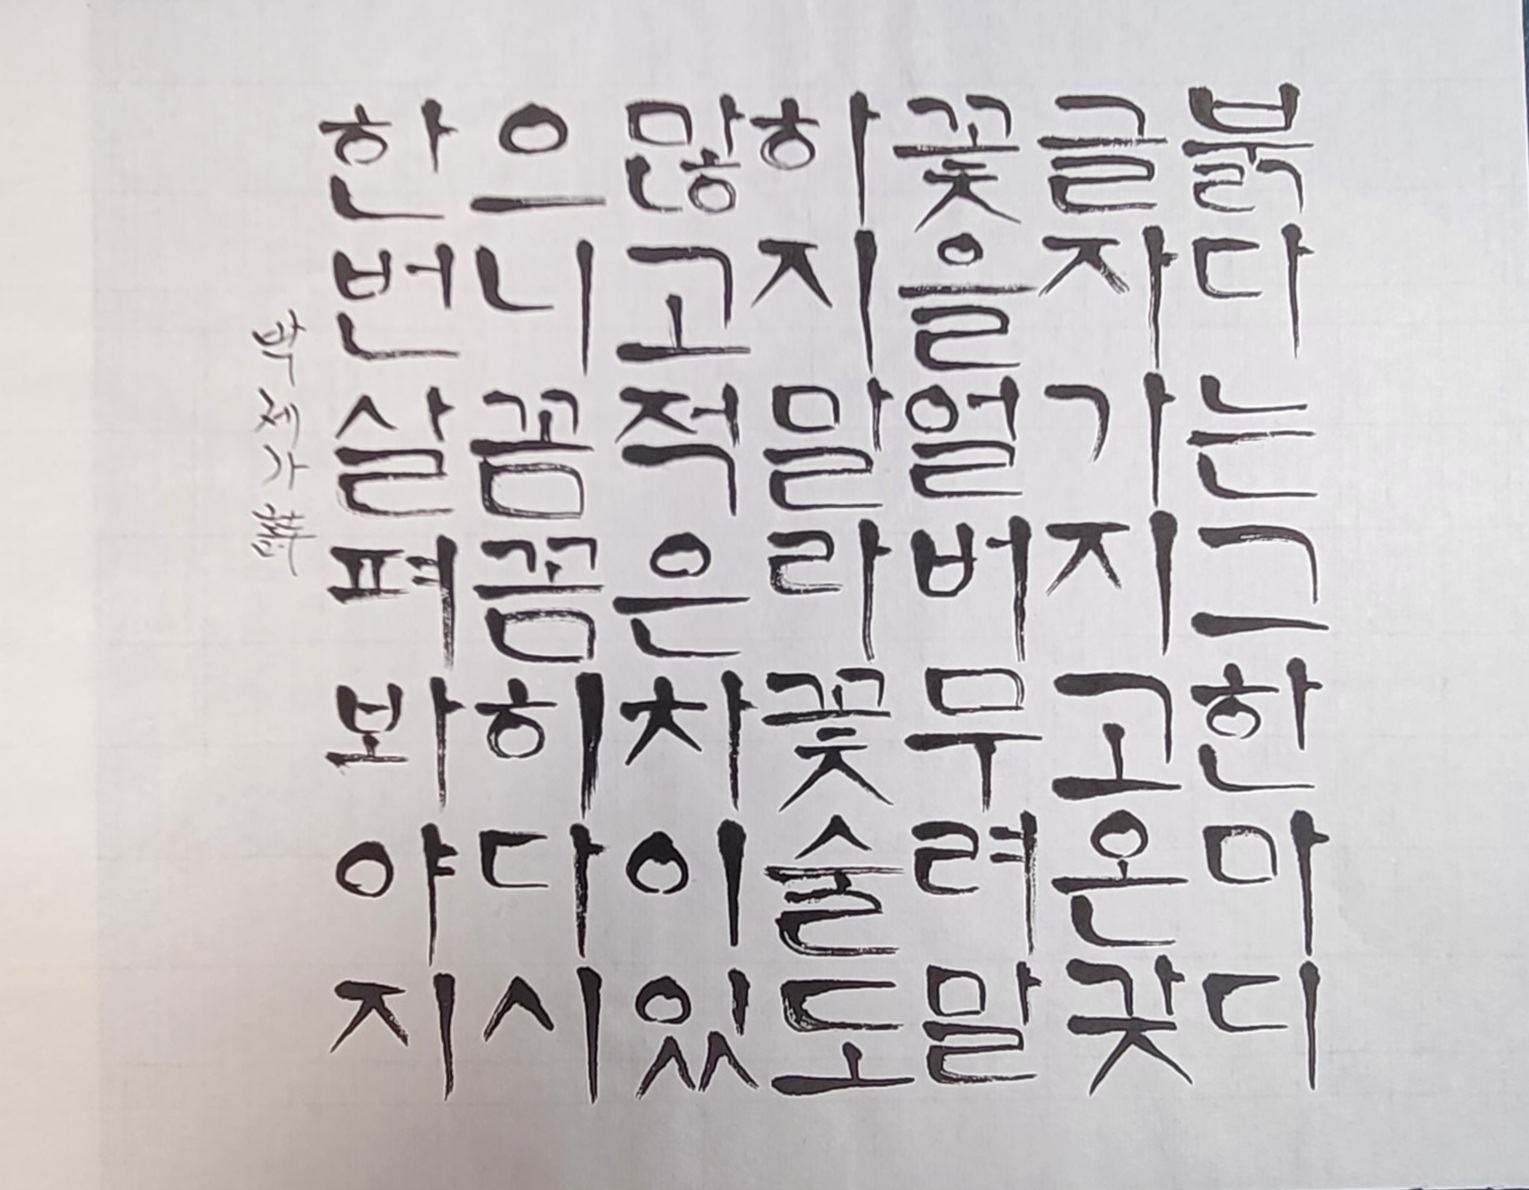 붉다는그한마디
글자가지고온갖
꽃을얼버무려말
하지말라꽃술도
많고적은차이있
으니꼼꼼히다시
한번살펴봐야지
박제가